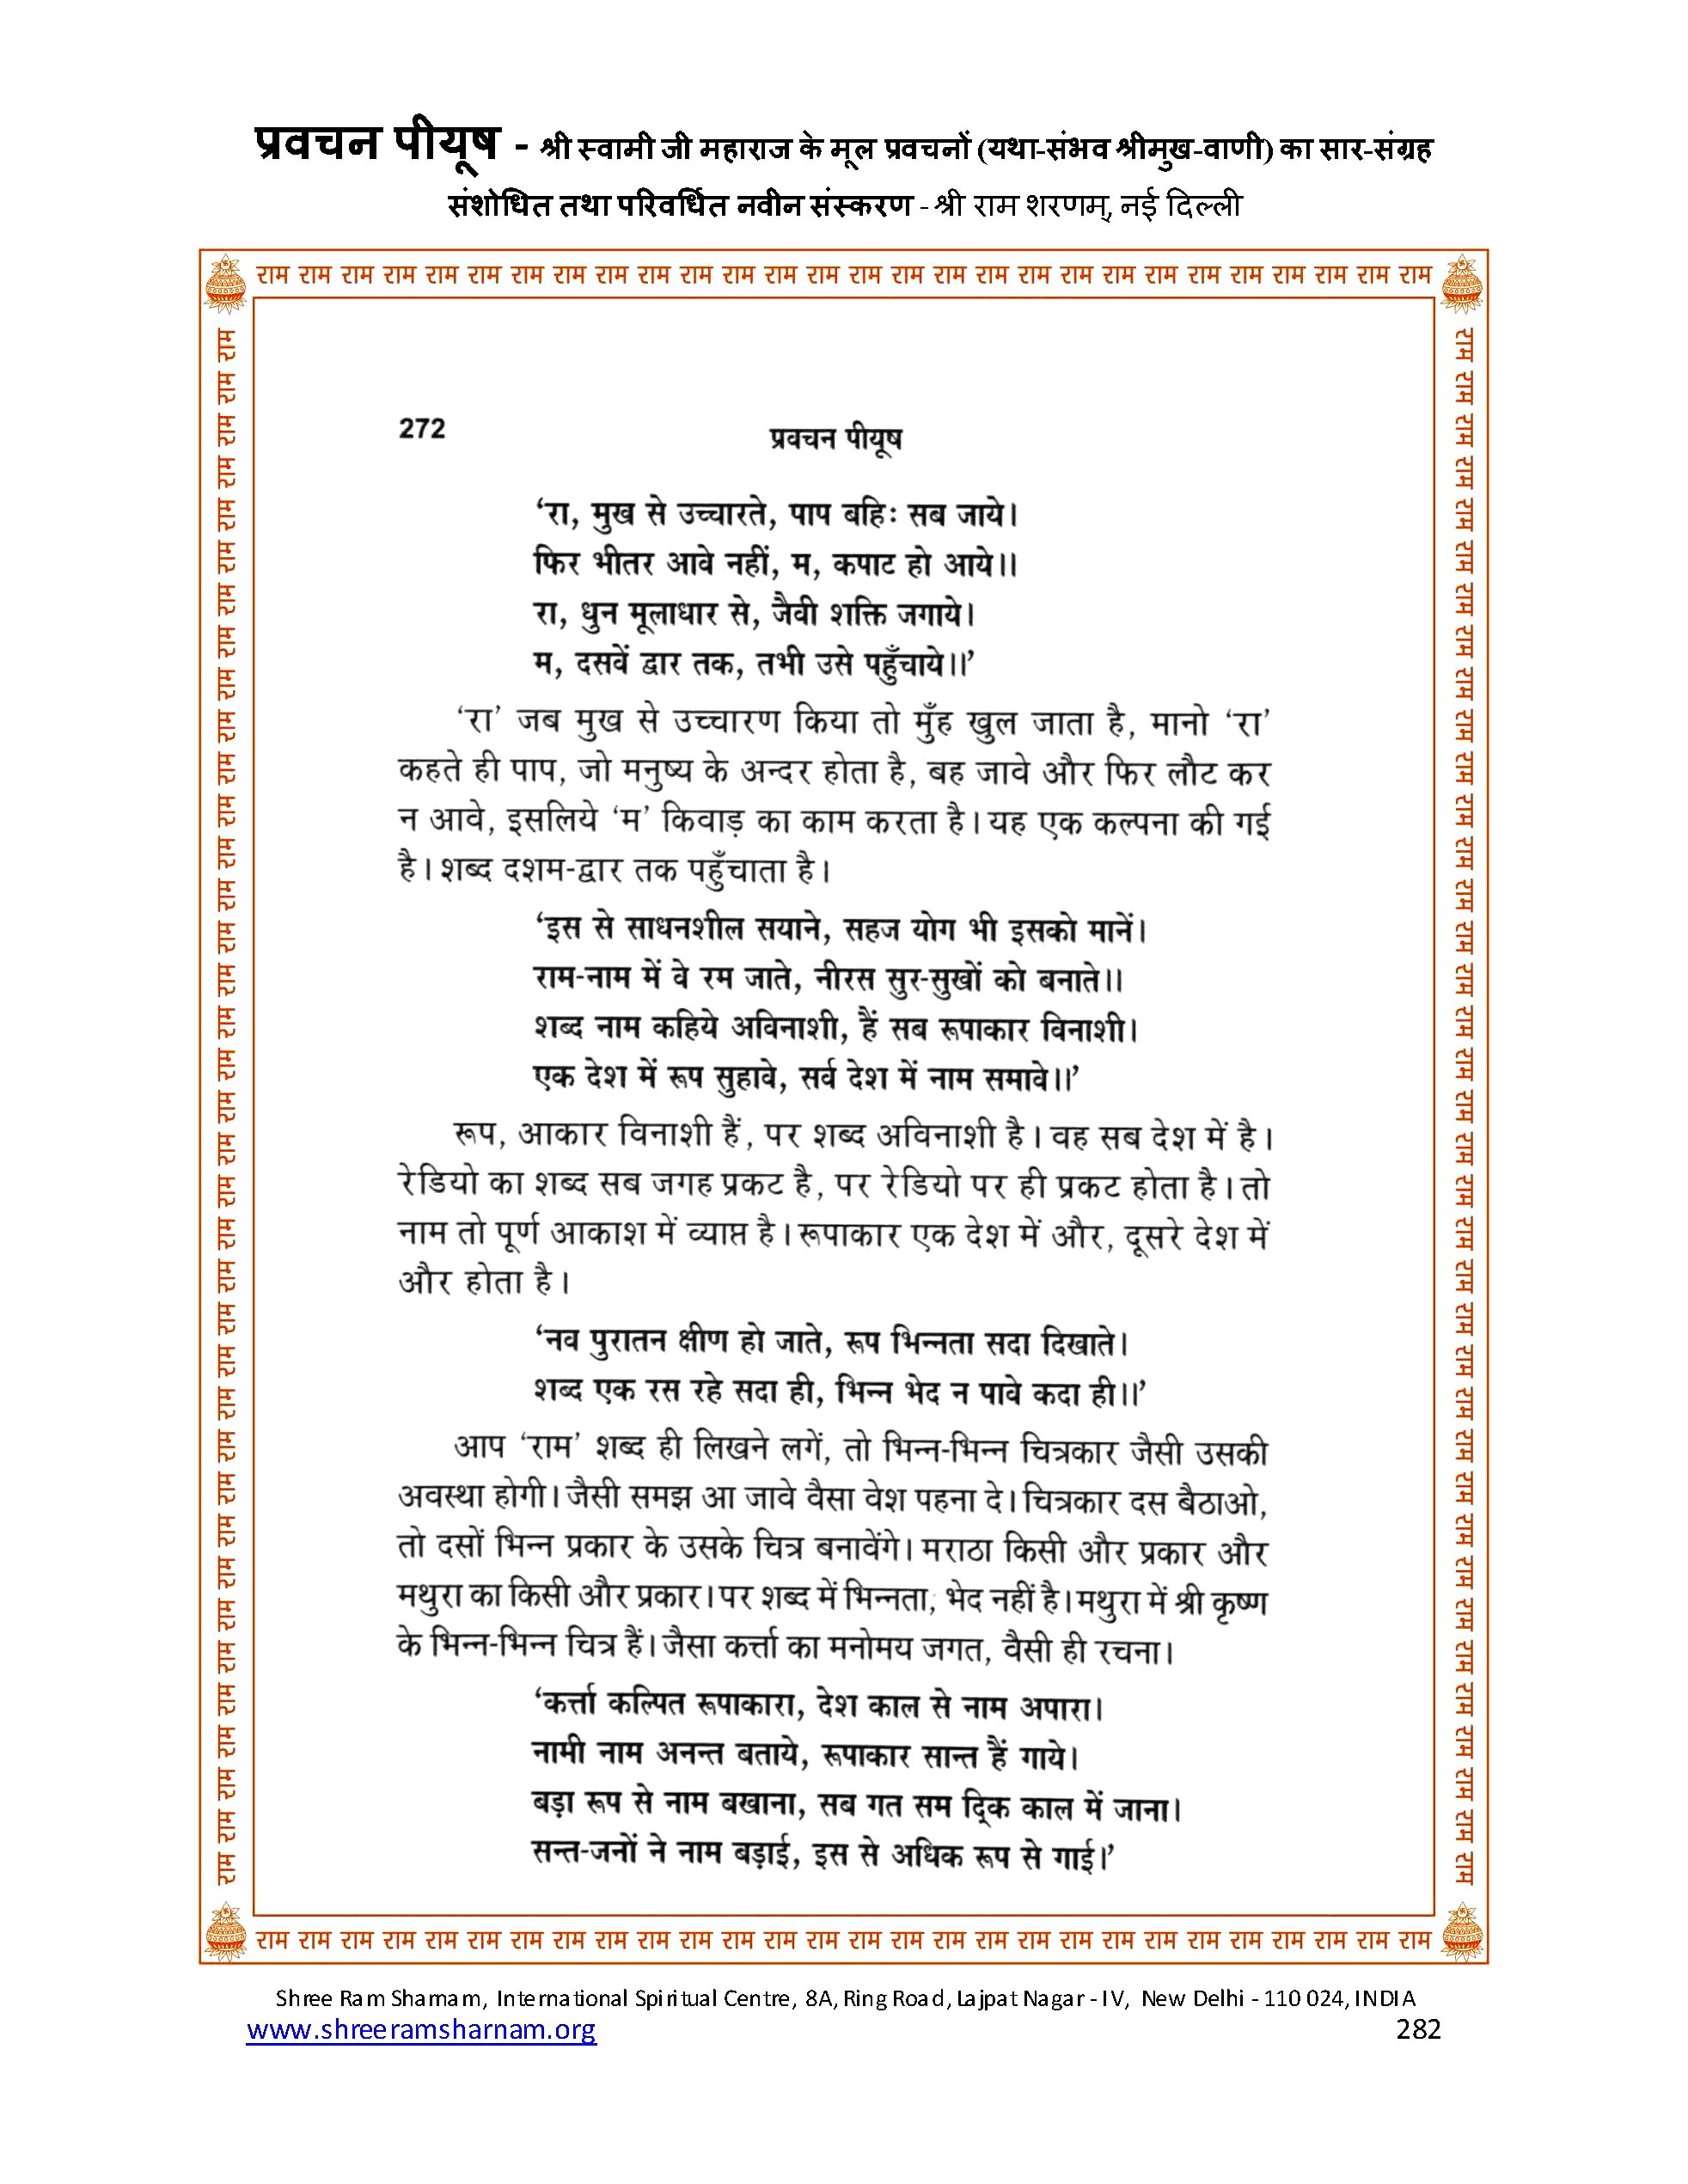 प्रवचन पीयूष - श्री स्वामी जी महाराज के मूल प्रवचनों (यथा-संभव श्रीमुख-वाणी) का सार-संग्रह
संशोधित तथा परिवर्धित नवीन संस्करण - श्री राम शरणम्, नई दिल्ली
राम राम राम राम राम राम राम राम राम राम राम राम राम राम राम राम राम राम राम राम राम राम राम राम राम राम राम राम
272
प्रवचन पीयूष
‘रा, मुख से उच्चारते, पाप बहिः सब जाये।
फिर भीतर आवे नहीं, म, कपाट हो आये।।
रा, धुन मूलाधार से, जैवी शक्ति जगाये।
म, दसवें द्वार तक, तभी उसे पहुँचाये।।’
‘रा’ जब मुख से उच्चारण किया तो मुँह खुल जाता है, मानो ‘रा’
कहते ही पाप, जो मनुष्य के अन्दर होता है, बह जावे और फिर लौट कर
न आवे, इसलिये ‘म’ किवाड़ का काम करता है। यह एक कल्पना की गई
है। शब्द दशम-द्वार तक पहुँचाता है।
‘इस से साधनशील सयाने, सहज योग भी इसको मानें।
राम-नाम में वे रम जाते, नीरस सुर-सुखों को बनाते।।
शब्द नाम कहिये अविनाशी, हैं सब रूपाकार विनाशी।
एक देश में रूप सुहावे, सर्व देश में नाम समावे।।’
रूप, आकार विनाशी हैं, पर शब्द अविनाशी है। वह सब देश में है।
रेडियो का शब्द सब जगह प्रकट है, पर रेडियो पर ही प्रकट होता है। तो
नाम तो पूर्ण आकाश में व्याप्त है। रूपाकार एक देश में और, दूसरे देश में
और होता है।
‘नव पुरातन क्षीण हो जाते, रूप भिन्नता सदा दिखाते।
शब्द एक रस रहे सदा ही, भिन्न भेद न पावे कदा ही।।’
आप ‘राम’ शब्द ही लिखने लगें, तो भिन्न-भिन्न चित्रकार जैसी उसकी
अवस्था होगी। जैसी समझ आ जावे वैसा वेश पहना दे। चित्रकार दस बैठाओ,
तो दसों भिन्न प्रकार के उसके चित्र बनावेंगे। मराठा किसी और प्रकार और
मथुरा का किसी और प्रकार। पर शब्द में भिन्नता, भेद नहीं है। मथुरा में श्री कृष्ण
के भिन्न-भिन्न चित्र हैं। जैसा कर्त्ता का मनोमय जगत, वैसी ही रचना।
‘कर्त्ता कल्पित रूपाकारा, देश काल से नाम अपारा।
नामी नाम अनन्त बताये, रूपाकार सान्त हैं गाये।
बड़ा रूप से नाम बखाना, सब गत सम द्रिक काल में जाना।
सन्त-जनों ने नाम बड़ाई, इस से अधिक रूप से गाई।’
राम राम राम राम राम राम राम राम राम राम राम राम राम राम राम राम राम राम राम राम राम राम राम राम राम राम राम राम
Shree Ram Sharnam, International Spiritual Centre, 8A, Ring Road, Lajpat Nagar - IV, New Delhi - 110 024, INDIA
www.shreeramsharnam.org
282
राम राम राम राम राम राम राम राम राम राम राम राम राम राम राम राम राम राम राम राम राम राम राम राम राम राम राम राम राम राम राम राम राम राम राम राम राम
राम राम राम राम राम राम राम राम राम राम राम राम राम राम राम राम राम राम राम राम राम राम राम राम राम राम राम राम राम राम राम राम राम राम राम राम राम